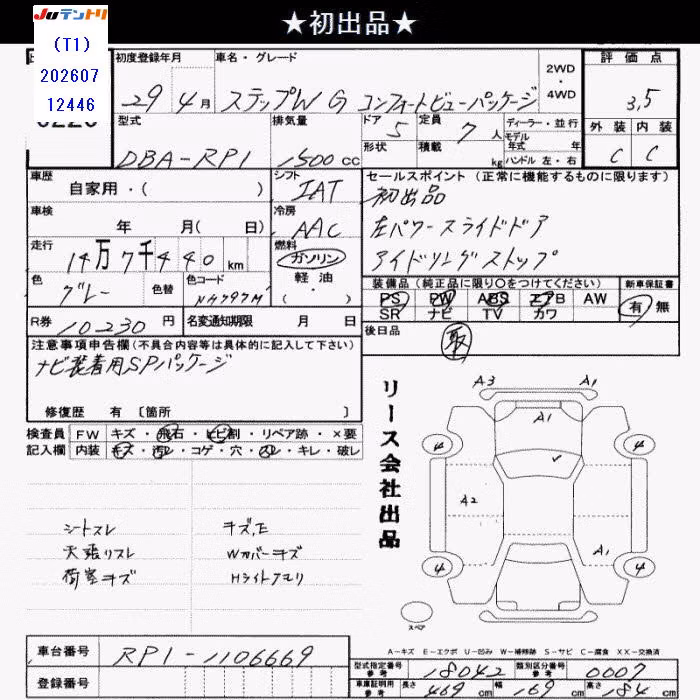 ★初出品★
JUテントリ
(T1)
202607
12446
初度登録年月
29年 4月
車名・グレード
ステップW G コンフォートビューパッケージ
2WD
・
4WD
評価点
3,5
外装 内装
C C
型式
DBA-RP1
排気量
1500 cc
ドア 5
形状
定員 7 人
積載 kg
ディーラー・並行
モデル
年式 年
ハンドル 左・右
車歴
自家用・( )
シフト
IAT
セールスポイント (正常に機能するものに限ります)
初出品
左パワースライドドア
アイドリングストップ
車検
年 月( 日)
冷房
AAC
走行
14万7千440 km
燃料
ガソリン
軽油
・
( )
色
グレー
色替
色コード
NH797M
装備品 (純正品に限り○をつけてください)
PS PW ABS エアB AW
SR ナビ TV カワ
新車保証書
有 無
R券 10230 円
名変通知期限 月 日
後日品
取
注意事項申告欄(不具合内容等は具体的に記入して下さい)
ナビ装着用SPパッケージ
修復歴 有 〔箇所 〕
検査員
記入欄
FW キズ・飛石・ヒビ割・リペア跡・×要
内装 キズ・汚レ・コゲ・穴・スレ・キレ・破レ
シートスレ
天張リスレ
荷室キズ
キズ,E
Wカバーキズ
Hライトクモリ
リース会社出品
A3 A1
A1
4 4
A2
A1
4 4
スペア
A-キズ E-エクボ U-凹み W-補修跡 S-サビ C-腐食 XX-交換済
車台番号 RP1-1106669
登録番号
型式指定番号
参考
18042
類別区分番号
参考
0007
車庫証明用
参考
長さ 469 cm 幅 169 cm 高さ 184 cm